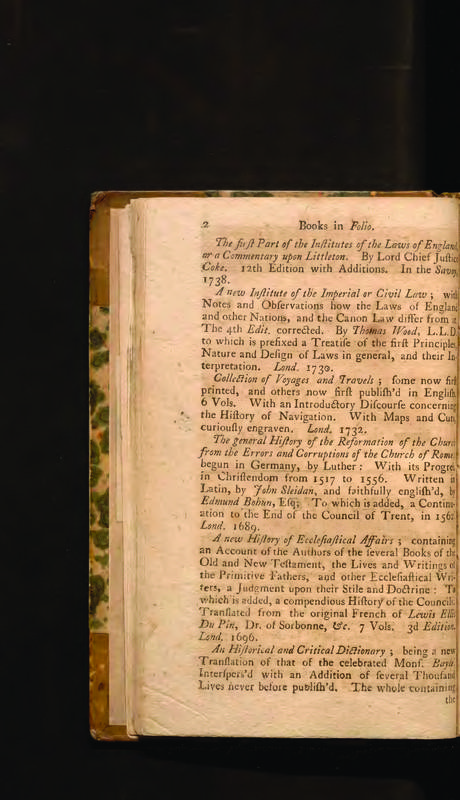 2 Books in Folio.
The first Part of the Institutes of the Laws of England,
or a Commentary upon Littleton. By Lord Chief Justice
Coke. 12th Edition with Additions. In the Savoy,
1738.
A new Institute of the Imperial or Civil Law ; with
Notes and Observations how the Laws of England
and other Nations, and the Canon Law differ from it
The 4th Edit. corrected. By Thomas Wood, L.L.D.
to which is prefixed a Treatise of the first Principles
Nature and Design of Laws in general, and their In-
terpretation. Lond. 1730.
Collection of Voyages and Travels ; some now first
printed, and others now first publish'd in English.
6 Vols. With an Introductory Discourse concerning
the History of Navigation. With Maps and Cuts,
curiously engraven. Lond. 1732.
The general History of the Reformation of the Church
from the Errors and Corruptions of the Church of Rome,
begun in Germany, by Luther : With its Progress
in Christendom from 1517 to 1556. Written in
Latin, by John Sleidan, and faithfully english'd, by
Edmund Bohun, Esq; To which is added, a Continu-
ation to the End of the Council of Trent, in 1562
Lond. 1689.
A new History of Ecclesiastical Affairs ; containing
an Account of the Authors of the several Books of the
Old and New Testament, the Lives and Writings of
the Primitive Fathers, and other Ecclesiastical Wri-
ters, a Judgment upon their Stile and Doctrine : To
which is added, a compendious History of the Councils.
Translated from the original French of Lewis Ellis
Du Pin, Dr. of Sorbonne, &c. 7 Vols. 3d Edition.
Lond. 1696.
An Historical and Critical Dictionary ; being a new
Translation of that of the celebrated Mons. Bayle.
Interspers'd with an Addition of several Thousand
Lives never before publish'd. The whole containing
the